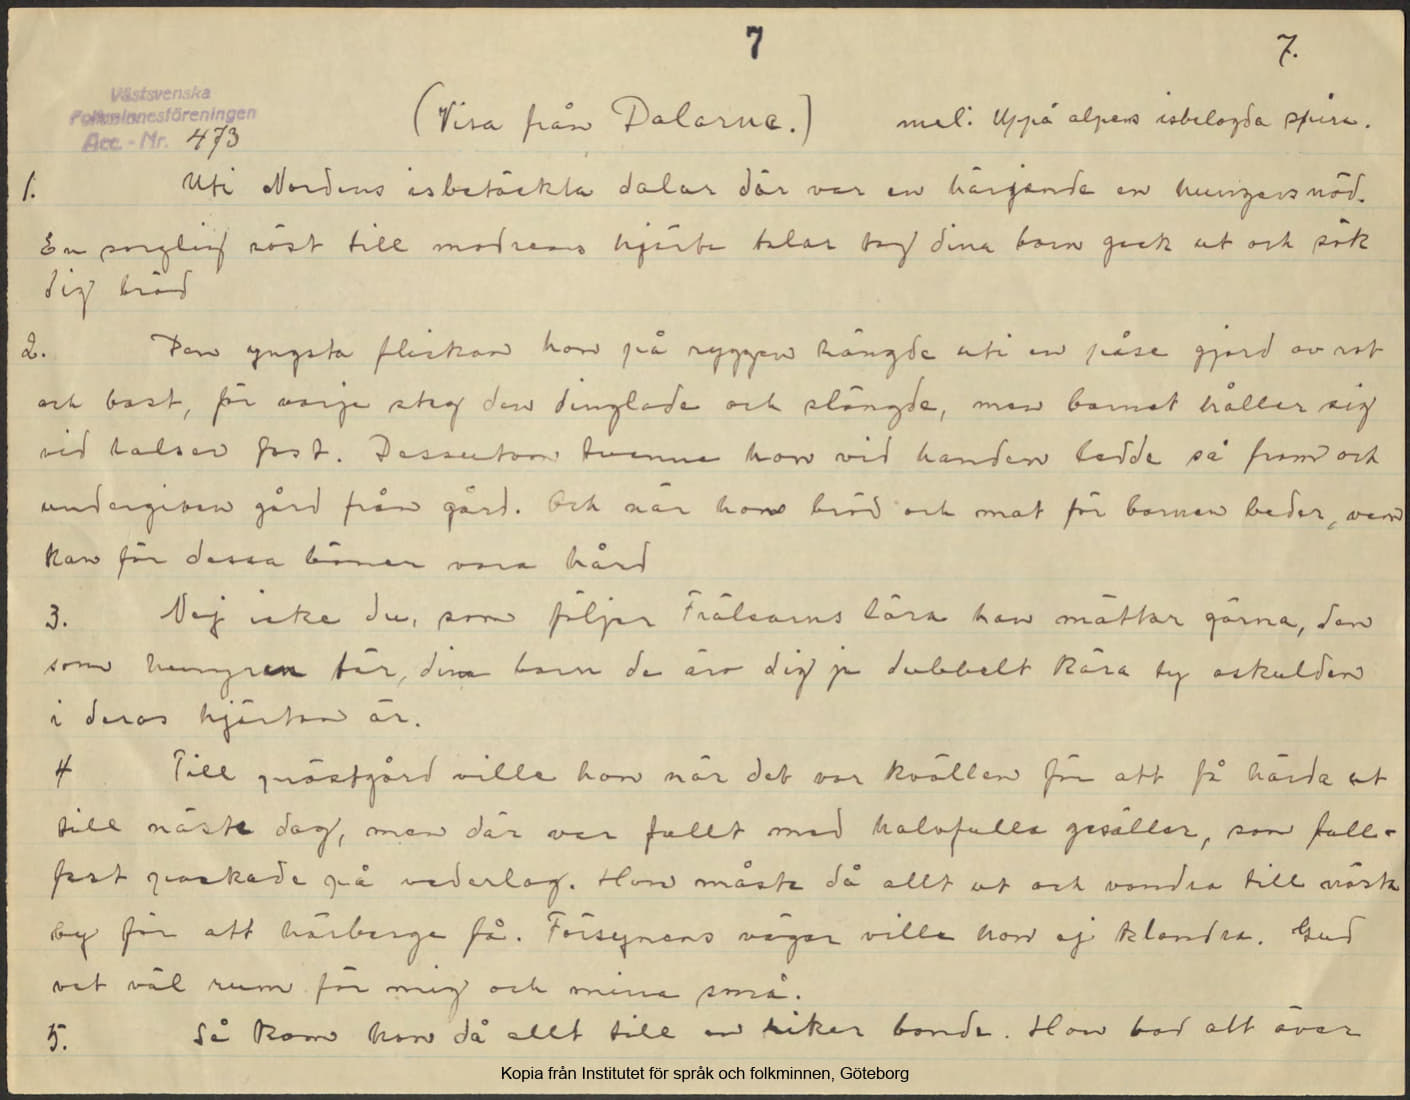 7
7.
Västsvenska
Folkminnesföreningen
Acc. - Nr. 473
(Visa från Dalarne.) mel: Uppå alpens isbelagda spira.
1. Uti Nordens isbetäckta dalar där var en härjande en hungersnöd.
En sorglig röst till modrens hjärta talar tag dina barn gack ut och sök
dig bröd
2. Den yngsta flickan hon på ryggen hängde uti en påse gjord av rot
och bast, för varje steg den dinglade och slängde, men barnet håller sig
vid halsen fast. Dessutom tvenne hon vid handen ledde så from och
undergiven gård från gård. Och när hon bröd och mat för barnen beder, vem
kan för dessa böner vara hård
3. Nej icke du, som följer Frälsarns lära han mättar gärna, den
som hungren tär, dina barn de äro dig ju dubbelt kära ty oskulden
i deras hjärtan är.
4 Till prästgård ville hon när det var kvällen för att få härda ut
till nästa dag, men där var fullt med halvfulla gesäller, som full-
fest paskade på vederlag. Hon måste då allt ut och vandra till nästa
by för att härberge få. Försynens vägar ville hon ej klandra. Gud
vet väl rum för mig och mina små.
5. Så kom hon då allt till en riker bonde. Hon bad att över
Kopia från Institutet för språk och folkminnen, Göteborg